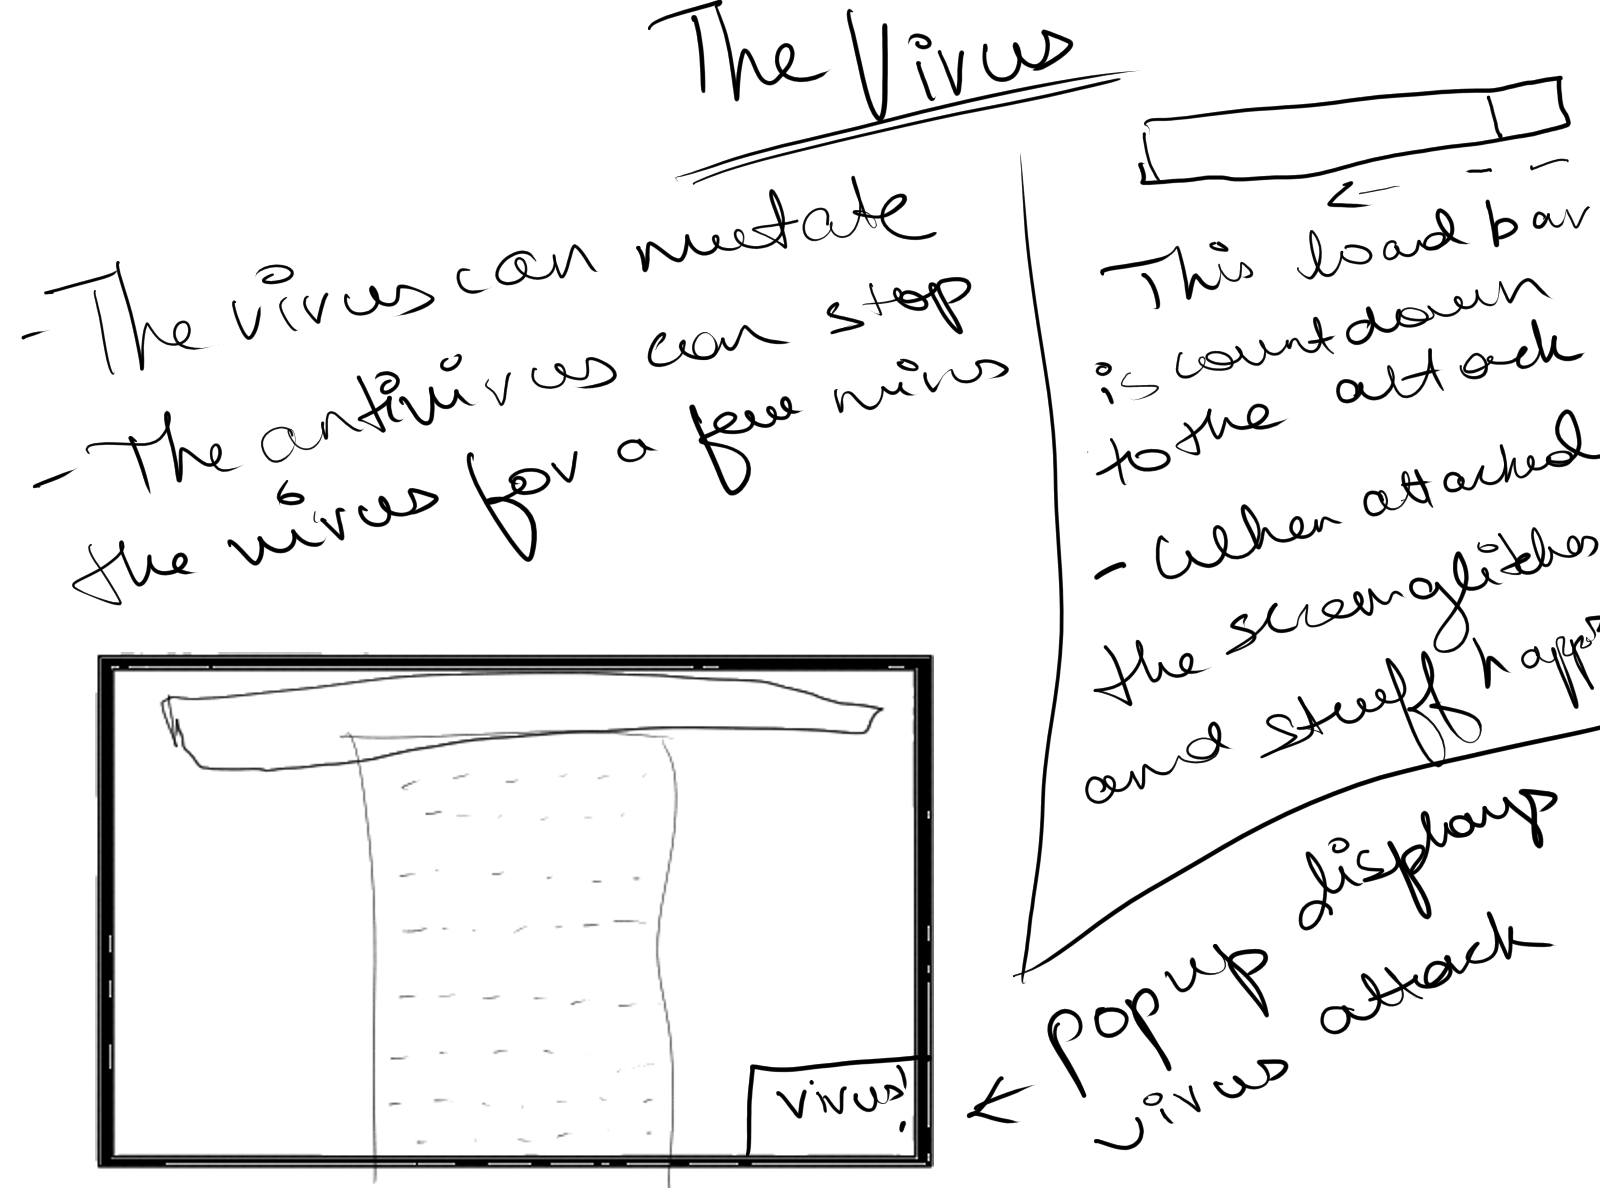 The Virus
- The virus can mutate
- The antivirus can stop
the virus for a few mins
This load bar
is countdown
to the attack
- When attacked
the screen glitches
and stuff happ
virus!
Popup displays
virus attack